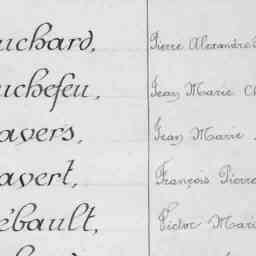 uchard, Pierre Alexandre
uchefeu, Jean Marie Ch
avers, Jean Marie
avert, François Pierre
ébault, Victor Mari